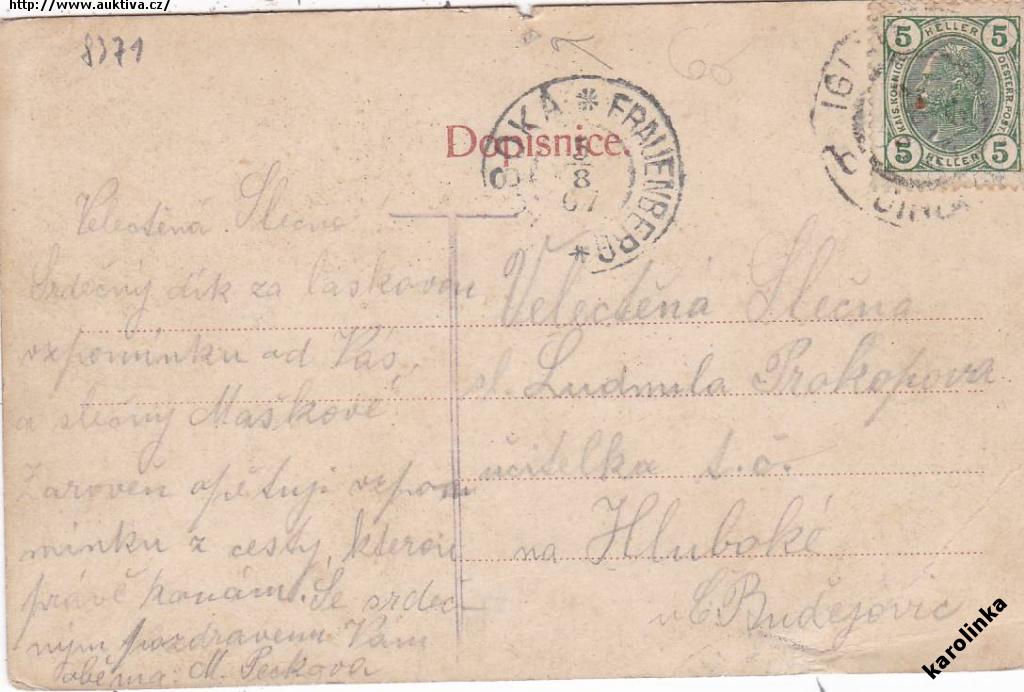 http://www.auktiva.cz/
8371
Dopisnice.
HLUBOKÁ * FRAUENBERG *
5
8
07
5 HELLER 5
KAIS. KOENIGL. OESTERR. POST
5 HELLER 5
IGL
Velectěná Slečno
Srdečný dík za laskavou
vzpomínku od Vás,
a slečny Maškové
Zároveň opětuji vzpom
mínku z cesty, kterou
právě konám. Se srdeč-
ným pozdravem Vám
oběma: M. Peckova
Velectěná Slečna
sl. Ludmila Prokopova
učitelka t.č.
na Hluboké
u Č. Budějovic
karolinka